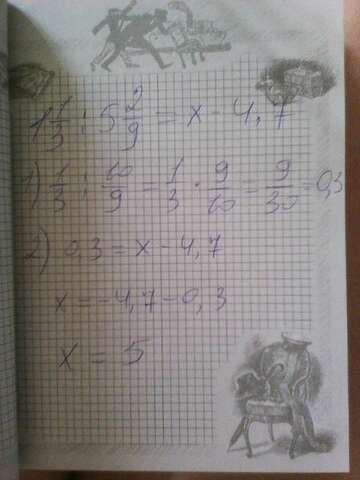 1 1/3 : 5 2/9 = x - 4,7
1) 1/3 : 10/9 = 1/3 · 9/10 = 9/30 = 0,3
2) 0,3 = x - 4,7
x = -4,7 - 0,3
x = 5